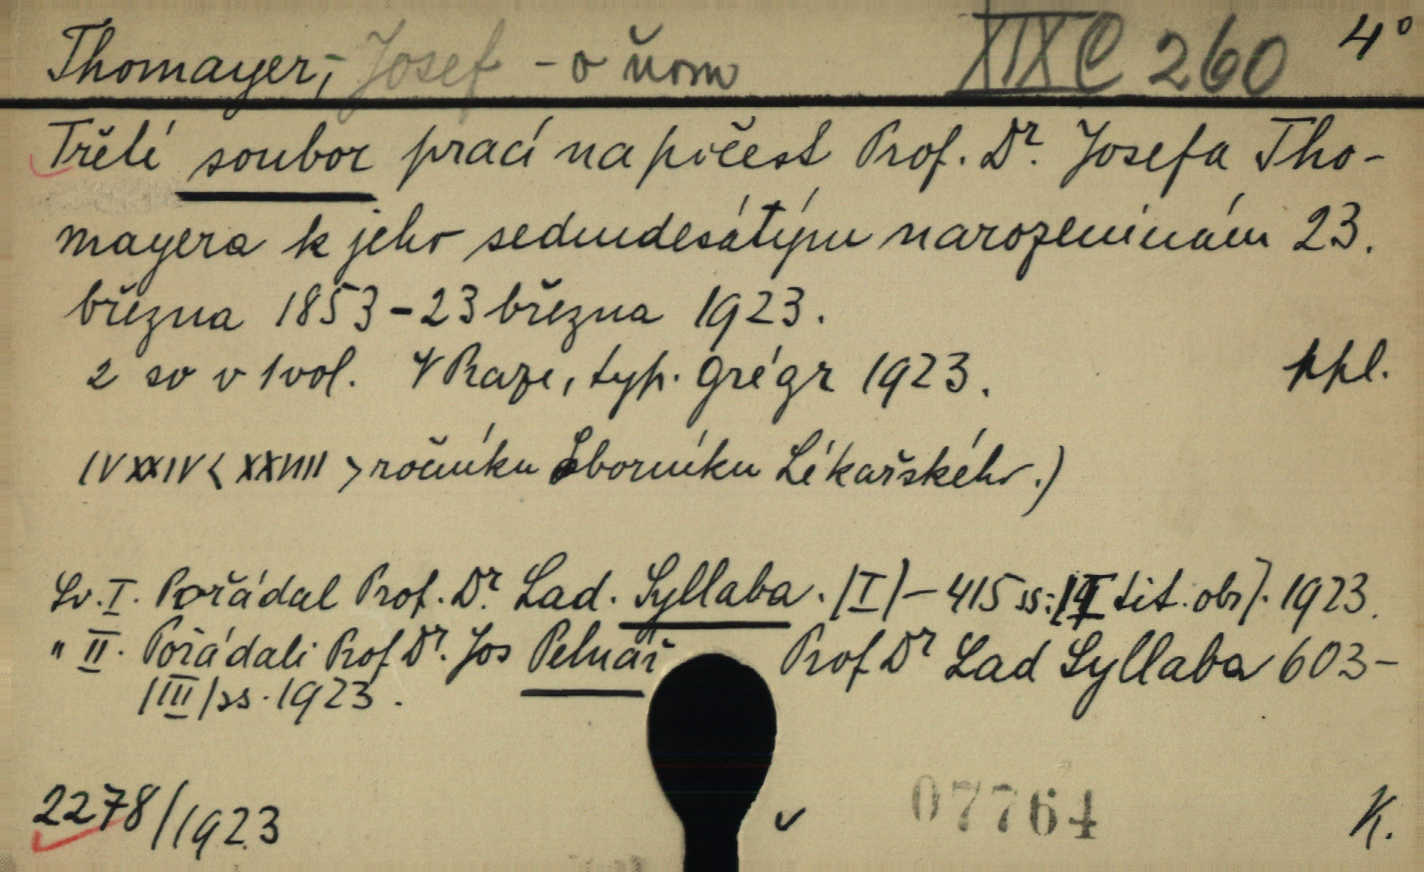 Thomayer, Josef - o ňom XIX C 260 4°
Třetí soubor prací na počest Prof. Dr. Josefa Tho-
mayera k jeho sedmdesátým narozeninám 23.
března 1853-23 března 1923.
2 sv v 1 vol. V Praze, typ. Grégr 1923. ppl.
(V XXIV < XXVIII > ročníku Sborníku Lékařského.)
Sv. I. Pořádal Prof. Dr. Lad. Syllaba. /I/ - 415 ss: tit. obr]. 1923.
" II. Pořádali Prof Dr. Jos Pelnář Prof Dr Lad Syllaba 603-
/III/ss. 1923.
2278/1923 07764 K.